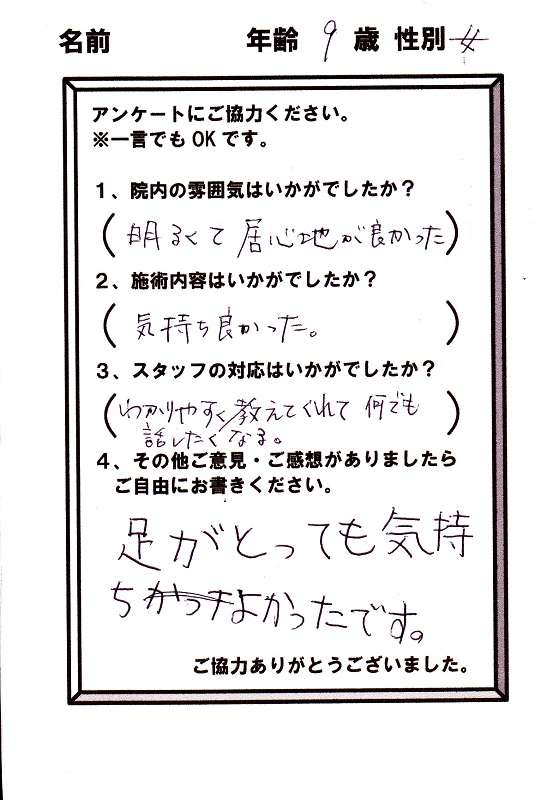 名前 年齢 9 歳 性別 女
アンケートにご協力ください。
※一言でもOKです。
1、院内の雰囲気はいかがでしたか？
(明るくて居心地が良かった)
2、施術内容はいかがでしたか？
(気持ち良かった。)
3、スタッフの対応はいかがでしたか？
(わかりやすく教えてくれて何でも
話したくなる。)
4、その他ご意見・ご感想がありましたら
ご自由にお書きください。
足がとっても気持
ちよかったです。
ご協力ありがとうございました。